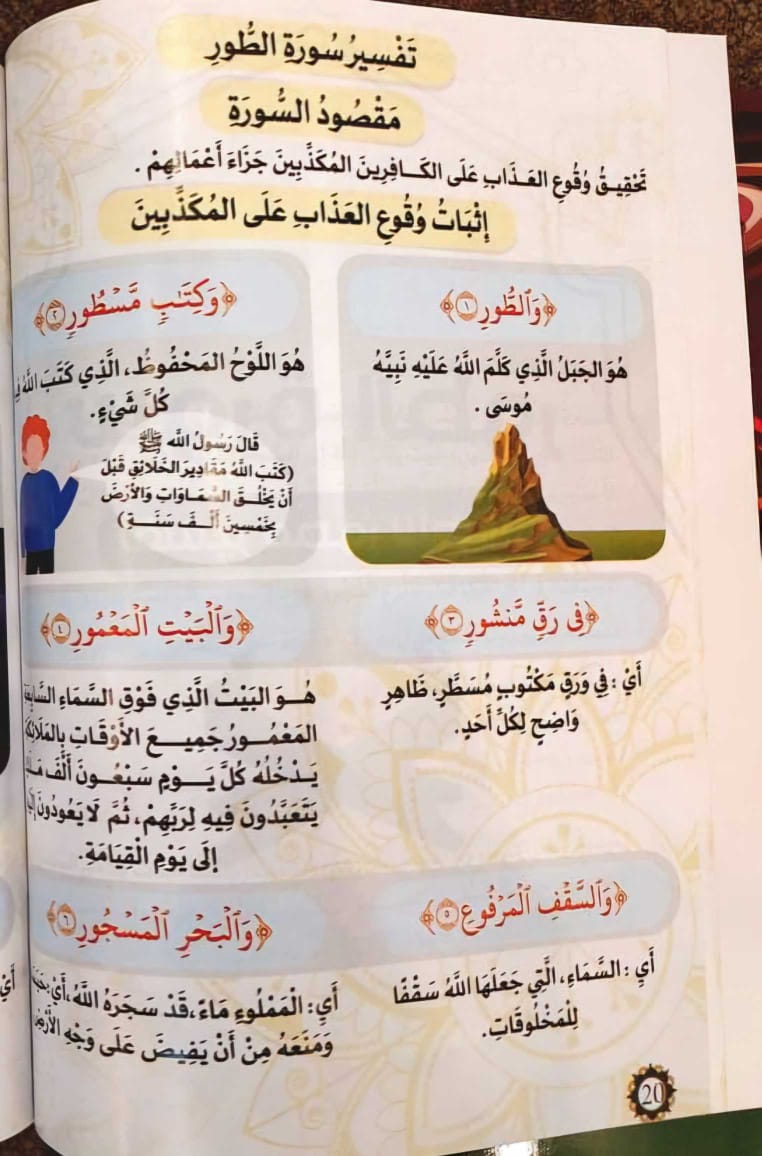 تَفْسِيرُ سُورَةِ الطُّورِ
مَقْصُودُ السُّورَةِ
تَحْقِيقُ وُقُوعِ العَذَابِ عَلَى الكَافِرِينَ المُكَذِّبِينَ جَزَاءَ أَعْمَالِهِمْ .
إِثْبَاتُ وُقُوعِ العَذَابِ عَلَى المُكَذِّبِينَ
﴿وَٱلطُّورِ ١﴾
هُوَ الجَبَلُ الَّذِي كَلَّمَ اللَّهُ عَلَيْهِ نَبِيَّهُ
مُوسَى .
﴿وَكِتَٰبٖ مَّسۡطُورٖ ٢﴾
هُوَ اللَّوْحُ المَحْفُوظُ، الَّذِي كَتَبَ اللَّهُ
كُلَّ شَيْءٍ.
قَالَ رَسُولُ اللَّه ﷺ
(كَتَبَ اللَّهُ مَقَادِيرَ الخَلَائِقِ قَبْلَ
أَنْ يَخْلُقَ السَّمَاوَاتِ وَالأَرْضَ
بِخَمْسِينَ أَلْفَ سَنَةٍ)
﴿فِي رَقّٖ مَّنشُورٖ ٣﴾
أَيْ : فِي وَرَقٍ مَكْتُوبٍ مُسَطَّرٍ، ظَاهِرٍ
وَاضِحٍ لِكُلِّ أَحَدٍ.
﴿وَٱلۡبَيۡتِ ٱلۡمَعۡمُورِ ٤﴾
هُوَ البَيْتُ الَّذِي فَوْقِ السَّمَاءِ
المَعْمُورُ جَمِيعَ الأَوْقَاتِ
يَدْخُلُهُ كُلَّ يَوْمٍ سَبْعُونَ أَلْفَ
يَتَعَبَّدُونَ فِيهِ لِرَبِّهِمْ، ثُمَّ لَا يَعُودُونَ
إِلَى يَوْمِ الْقِيَامَةِ.
﴿وَٱلسَّقۡفِ ٱلۡمَرۡفُوعِ ٥﴾
أَيِ : السَّمَاءِ، الَّتِي جَعَلَهَا اللَّهُ سَقْفًا
لِلْمَخْلُوقَاتِ.
﴿وَٱلۡبَحۡرِ ٱلۡمَسۡجُورِ ٦﴾
أَيِ: الْمَمْلُوءِ مَاءً، قَدْ سَجَرَهُ اللَّهُ، أَيْ:
وَمَنَعَهُ مِنْ أَنْ يَفِيضَ عَلَى وَجْهِ
20